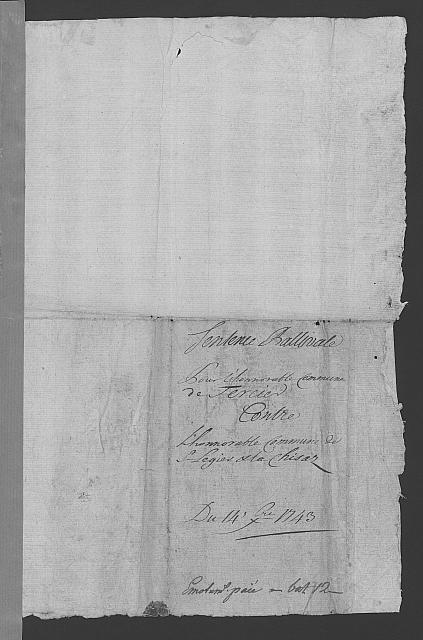 Sentence Ballivale
Pour L'honnorable Commune
de Tercier
Contre
L'honnorable Commune de
St Legier & La Chiesaz
Du 14e Xbre 1743
Emolumt paié = batz 12